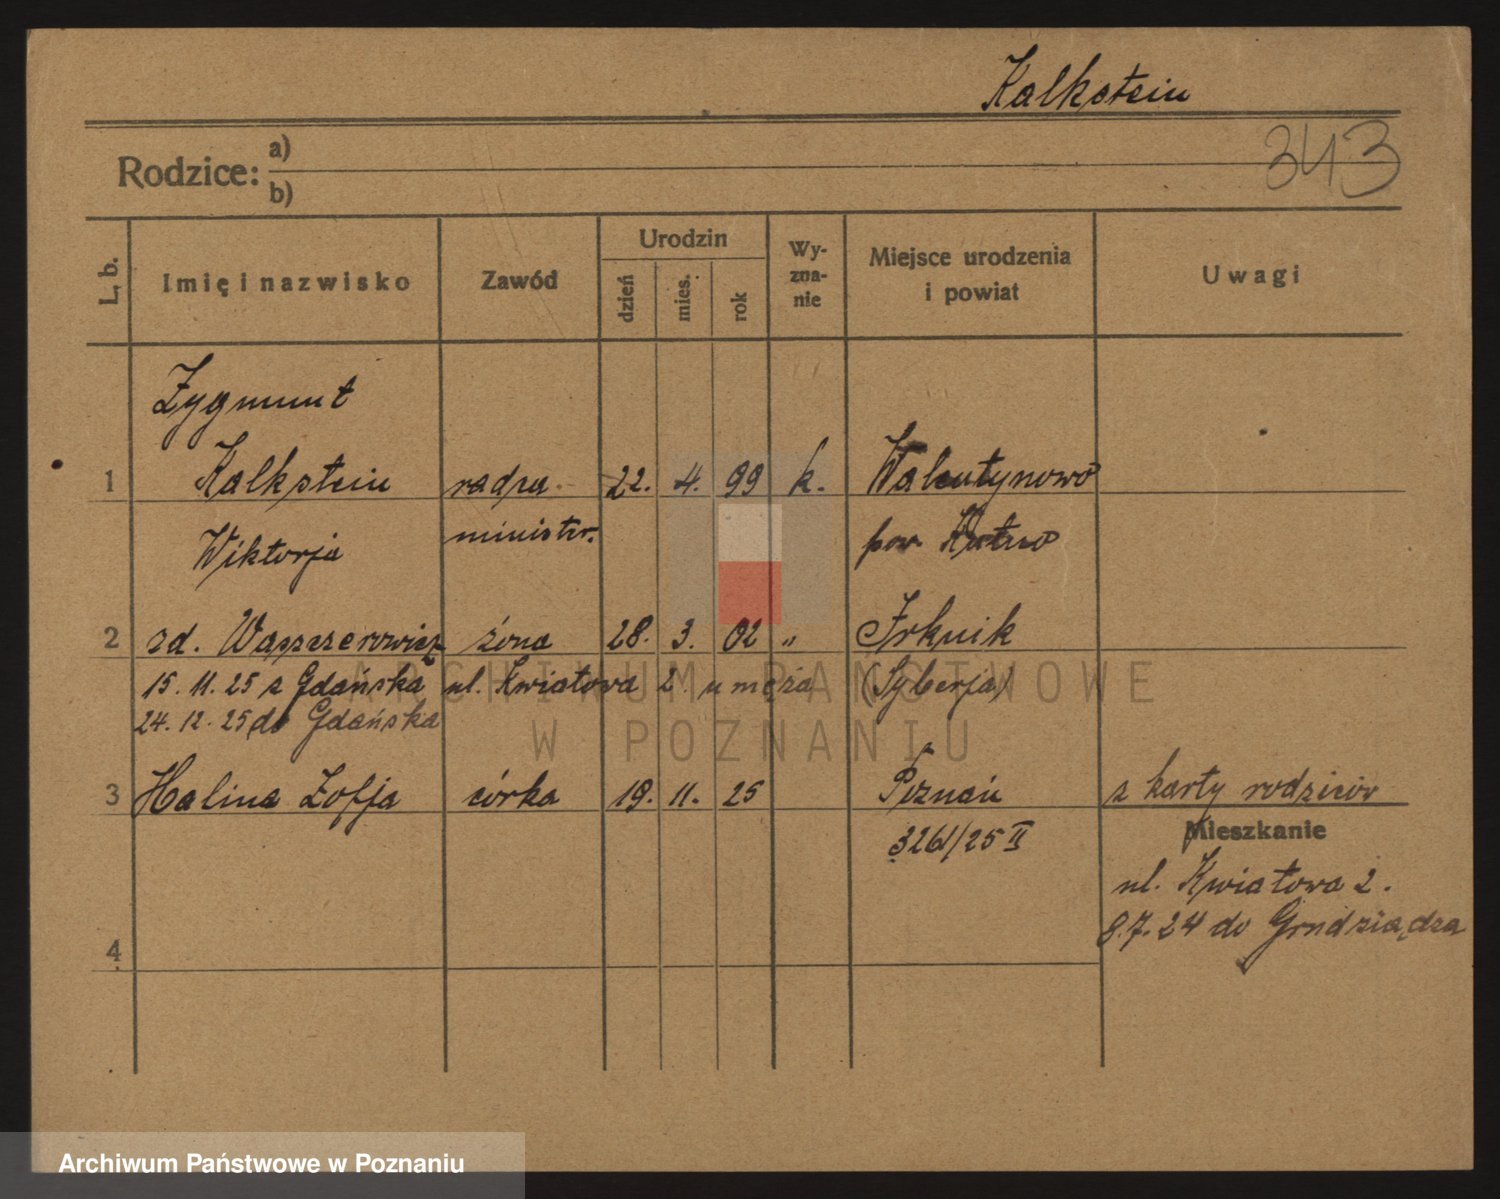 Kalkstein
343
Rodzice: a)
b)
L. b.
Imię i nazwisko
Zawód
Urodzin
dzień
mies.
rok
Wy-
zna-
nie
Miejsce urodzenia
i powiat
Uwagi
Zygmunt
1 Kalkstein radca 22. 4. 99 k. Walentynowo
ministr. pow. Kutno
Wiktorja
2 zd. Waszczerowicz żona 28. 3. 02 " Irknik
15. 11. 25 z Gdańska ul. Kwiatowa 2. u męża (Syberja)
24. 12. 25 do Gdańska
3 Halina Zofja córka 19. 11. 25 Poznań z karty rodziców
3261/25 II
Mieszkanie
ul. Kwiatowa 2.
8.7.24 do Grudziądza
4
ARCHIWUM PAŃSTWOWE
W POZNANIU
Archiwum Państwowe w Poznaniu